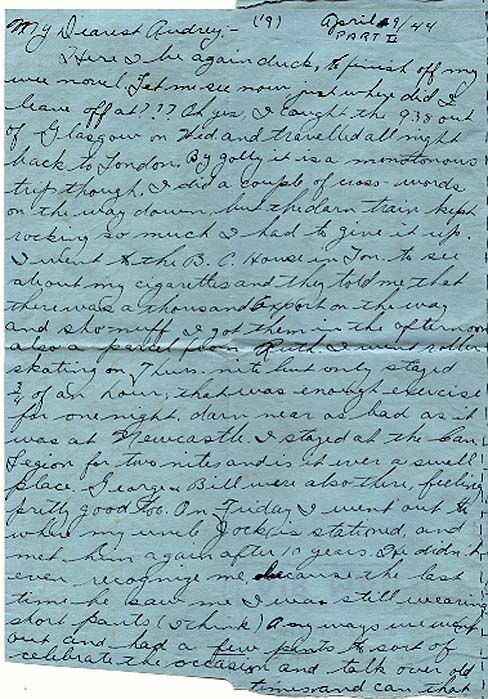 My Dearest Audrey,- (19) April 9/44
PART II
Here I be again duck, to finish off my
wee novel. Let me see now just where did I
leave off at??? Oh yes, I caught the 9.38 out
of Glasgow on Wed and travelled all night
back to London. By golly it is a monotonous
trip though, I did a couple of cross-words
on the way down, but the darn train kept
rocking so much I had to give it up.
I went to the B.C. House in Lon. to see
about my cigarettes and they told me that
there was a thousand Export on the way
and sho-nuff I got them in the afternoon
also a parcel from Ruth. I went roller
skating on Thurs. nite but only stayed
3/4 of an hour, that was enough exercise
for one night, darn near as bad as it
was at Newcastle. I stayed at the Can.
Legion for two nites and is it ever a swell
place. George & Bill were also there, feeling
pretty good too. On Friday I went out to
where my uncle Jock is stationed, and
met him again after 10 years. He didn't
even recognize me, because the last
time he saw me I was still wearing
short pants (I think) Anyways we went
out and had a few pints to sort of
celebrate the occasion and talk over old
times and can that